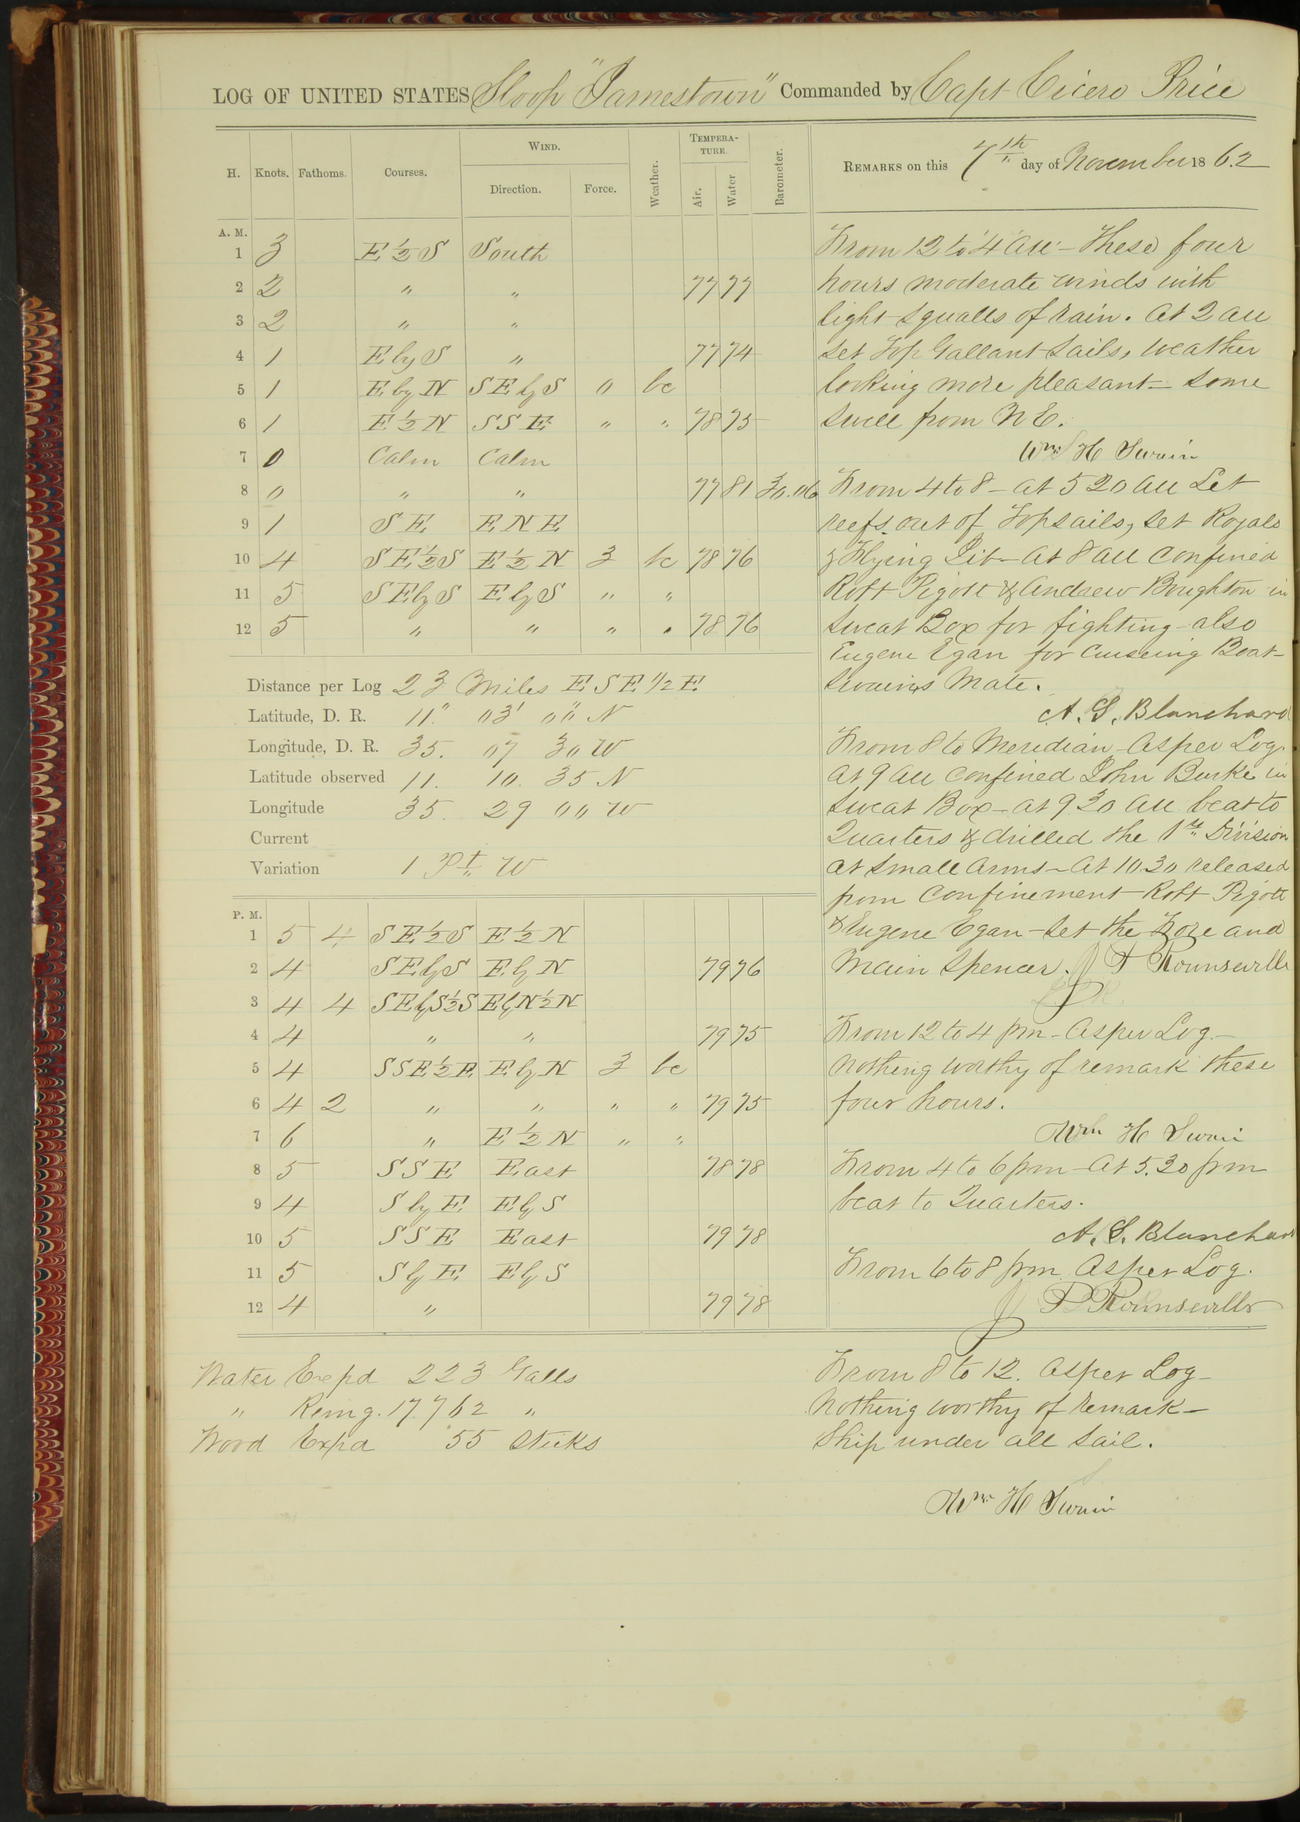 LOG OF UNITED STATES Sloop "Jamestown" Commanded by Capt Cicero Price
H. Knots. Fathoms. Courses. WIND. Direction. Force. Weather. TEMPERATURE. Air. Water Barometer. REMARKS on this 7th day of November 1862
A. M.
1 3 E ½ S South
2 2 " " 77 77
3 2 " "
4 1 E by S " 77 74
5 1 E by N SE by S 0 bc
6 1 E ½ N SSE " " 78 75
7 0 Calm Calm
8 0 " " 77 81 30.06
9 1 SE ENE
10 4 SE ½ S E ½ N 3 bc 78 76
11 5 SE by S E by S " "
12 5 " " " " 78 76
Distance per Log 23 Miles ESE ½ E
Latitude, D. R. 11° 03' 00" N
Longitude, D. R. 35. 07 30 W
Latitude observed 11. 10. 35 N
Longitude 35. 29 00 W
Current
Variation 1 Pt. W
P. M.
1 5 4 SE ½ S E ½ N
2 4 SE by S E by N 79 76
3 4 4 SE by S ½ S E by N ½ N
4 4 " " 79 75
5 4 SSE ½ E E by N 3 bc
6 4 2 " " " " 79 75
7 6 " E ½ N " "
8 5 SSE East 78 78
9 4 S by E E by S
10 5 SSE East 79 78
11 5 S by E E by S
12 4 " 79 78
Water Expd 223 Galls
" Remg. 17.762 "
Wood Expd 55 Sticks
From 12 to 4 AM – These four
hours moderate winds with
light squalls of rain. At 2 AM
Set Top Gallant Sails, weather
looking more pleasant – Some
Swell from N E.
Wm H Swain
From 4 to 8 – at 5 20 AM Let
reefs out of Topsails, set Royals
& Flying Jib – At 8 AM confined
Robt Pigott & Andrew Boughton in
Sweat Box for fighting – also
Eugene Egan for Curseing Boat-
Swains Mate.
A. S. Blanchard
From 8 to Meridian – As per Log.
At 9 AM Confined John Burke in
Sweat Box – at 9 30 AM beat to
Quarters & drilled the 1st Division
at Small Arms – At 10.30 released
from Confinement Robt Pigott
& Eugene Egan – Set the Fore and
Main Spencer. J P Rounseville
From 12 to 4 pm – As per Log –
Nothing worthy of remark these
four hours.
Wm H Swain
From 4 to 6 pm – At 5.30 pm
beat to Quarters.
A. S. Blanchard
From 6 to 8 pm As per Log.
J P Rounseville
From 8 to 12. As per Log –
Nothing worthy of remark –
Ship under all Sail.
Wm H Swain